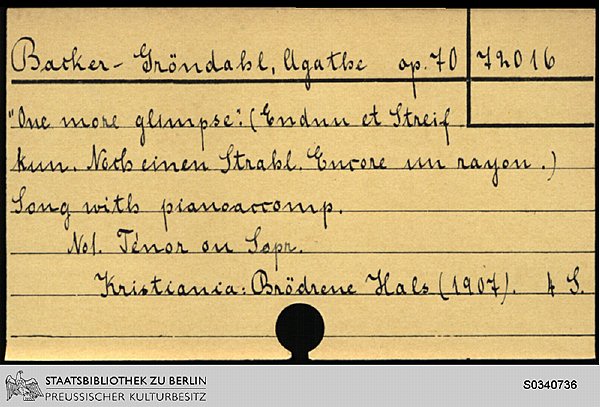 Backer-Gröndahl, Agathe op. 70 72016
"One more glimpse". (Endnu et Streif
kun. Noch einen Strahl. Encore un rayon.)
Song with pianoaccomp.
No1. Ténor ou Sopr.
Kristiania: Brödrene Hals (1907). 4 S.
STAATSBIBLIOTHEK ZU BERLIN
PREUSSISCHER KULTURBESITZ
S0340736